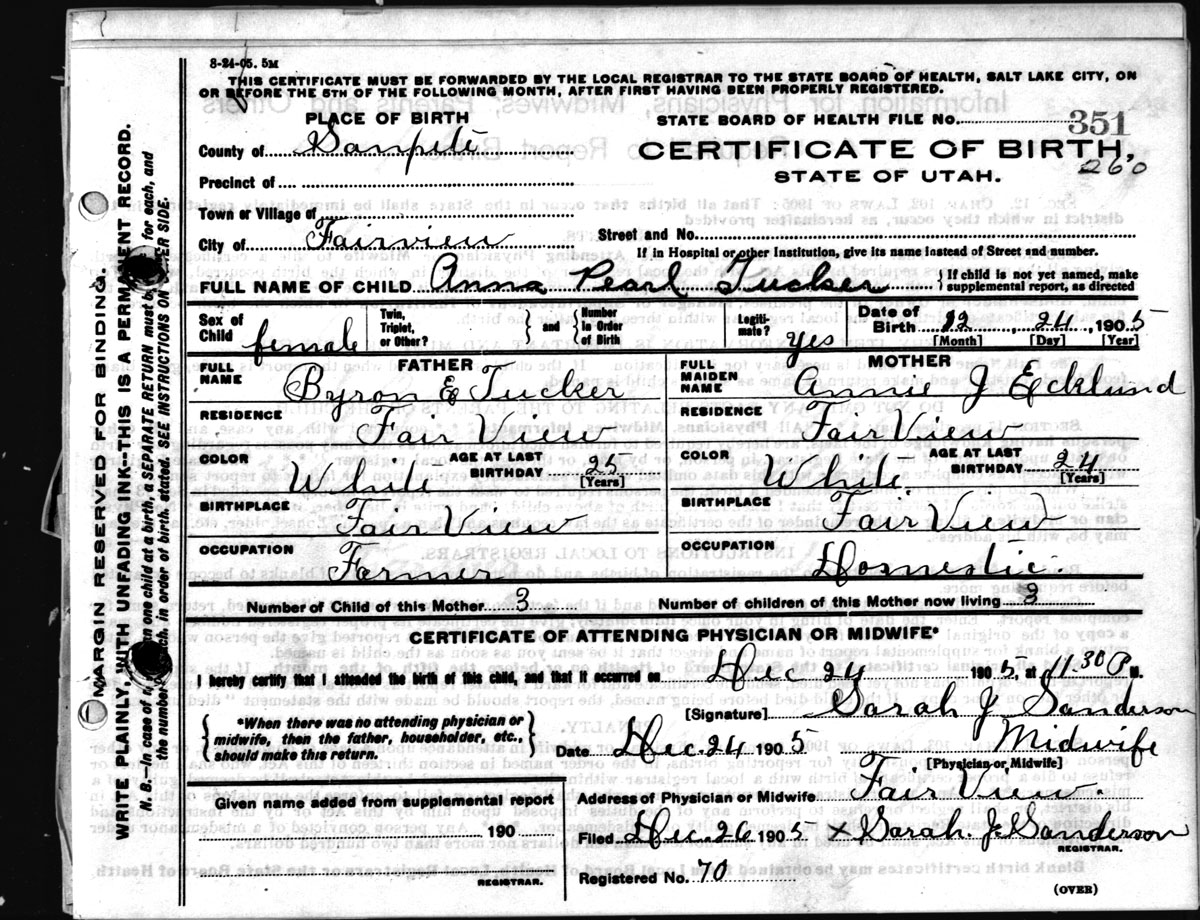 8-24-05. 5M
THIS CERTIFICATE MUST BE FORWARDED BY THE LOCAL REGISTRAR TO THE STATE BOARD OF HEALTH, SALT LAKE CITY, ON
OR BEFORE THE 5TH OF THE FOLLOWING MONTH, AFTER FIRST HAVING BEEN PROPERLY REGISTERED.
PLACE OF BIRTH
STATE BOARD OF HEALTH FILE No. 351
County of Sanpete
CERTIFICATE OF BIRTH,
260
Precinct of
STATE OF UTAH.
Town or Village of
City of Fairview
Street and No.
If in Hospital or other Institution, give its name instead of Street and number.
FULL NAME OF CHILD Anna Pearl Tucker
If child is not yet named, make
supplemental report, as directed
Sex of Child female
Twin, Triplet, or Other?
and
Number in Order of Birth
Legiti-mate? yes
Date of Birth 12, 24, 1905
[Month] [Day] [Year]
FATHER
MOTHER
FULL NAME Byron E Tucker
FULL MAIDEN NAME Annie J Ecklund
RESIDENCE Fair View
RESIDENCE Fair View
COLOR White
AGE AT LAST BIRTHDAY 25 [Years]
COLOR White
AGE AT LAST BIRTHDAY 24 [Years]
BIRTHPLACE Fair View
BIRTHPLACE Fair View
OCCUPATION Farmer
OCCUPATION Domestic.
Number of Child of this Mother 3
Number of children of this Mother now living 3
CERTIFICATE OF ATTENDING PHYSICIAN OR MIDWIFE*
I hereby certify that I attended the birth of this child, and that it occurred on Dec 24 1905, at 11.30 P M.
*When there was no attending physician or
midwife, then the father, householder, etc.,
should make this return.
[Signature] Sarah J Sanderson
Date Dec. 24 1905 Midwife
[Physician or Midwife]
Given name added from supplemental report
Address of Physician or Midwife Fair View.
190
Filed Dec. 26 1905 x Sarah. J. Sanderson
REGISTRAR.
REGISTRAR.
Registered No. 70
(OVER)
MARGIN RESERVED FOR BINDING.
WRITE PLAINLY, WITH UNFADING INK--THIS IS A PERMANENT RECORD.
N. B.—In case of than one child at a birth, a SEPARATE RETURN must be for each, and
the number each, in order of birth, stated. SEE INSTRUCTIONS ON OTHER SIDE.